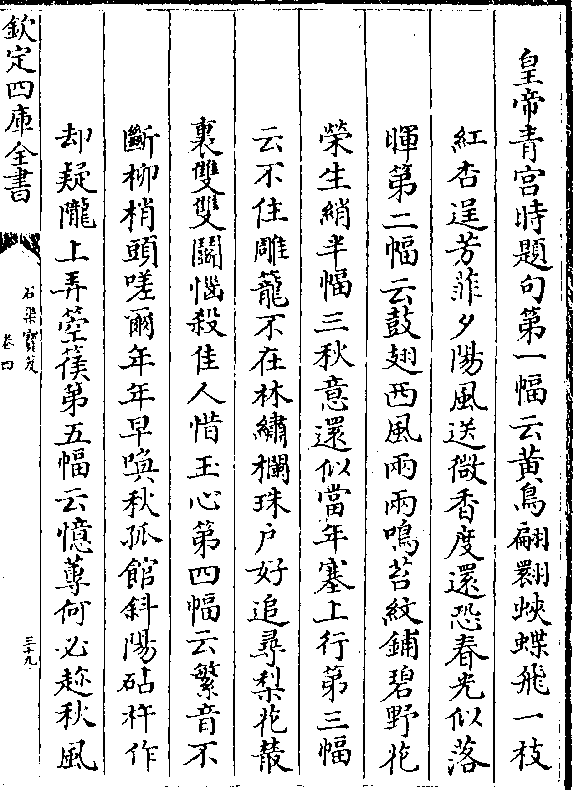 皇帝青宫時題句第一幅云黄鳥翩翾蛺蝶飛一枝
紅杏逞芳菲夕陽風送微香度還恐春光似落
暉第二幅云鼓翅西風兩兩鳴苔紋鋪碧野花
榮生綃半幅三秋意還似當年塞上行第三幅
云不住雕籠不在林繡欄珠户好追尋梨花叢
裏雙雙鬬惱殺佳人惜玉心第四幅云繁音不
斷柳梢頭嗟爾年年早喚秋孤館斜陽砧杵作
却疑隴上弄箜篌第五幅云憶蓴何必趂秋風
欽定四庫全書
石渠寳笈
卷四
三十九